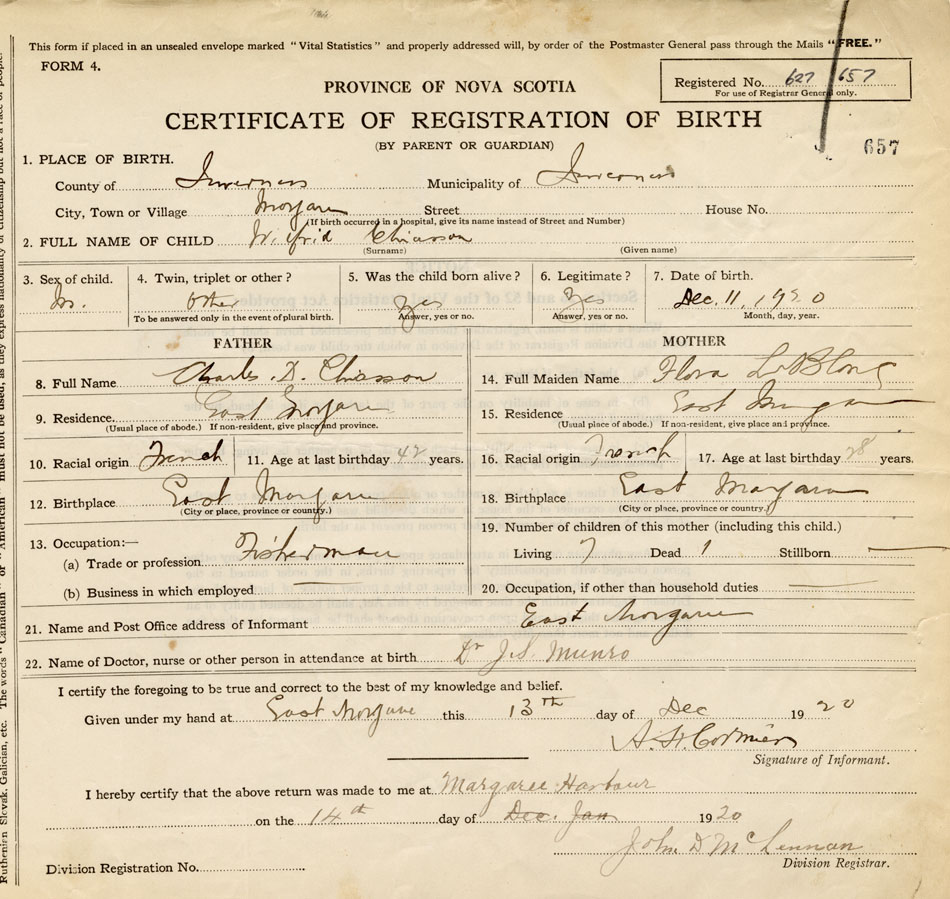 This form if placed in an unsealed envelope marked "Vital Statistics" and properly addressed will, by order of the Postmaster General pass through the Mails "FREE."
FORM 4.
Registered No. 627 657
For use of Registrar General only.
PROVINCE OF NOVA SCOTIA
CERTIFICATE OF REGISTRATION OF BIRTH
(BY PARENT OR GUARDIAN)
657
1. PLACE OF BIRTH.
County of Inverness Municipality of Inverness
City, Town or Village Street House No.
(If birth occurred in a hospital, give its name instead of Street and Number)
2. FULL NAME OF CHILD Wilfrid Chiasson
(Surname) (Given name)
3. Sex of child. 4. Twin, triplet or other? 5. Was the child born alive? 6. Legitimate? 7. Date of birth.
M. other yes yes Dec. 11, 1920
To be answered only in the event of plural birth. Answer, yes or no. Answer, yes or no. Month, day, year.
FATHER MOTHER
8. Full Name Charles D. Chiasson 14. Full Maiden Name Flora LeBlanc
9. Residence. East 15. Residence East
(Usual place of abode.) If non-resident, give place and province. (Usual place of abode.) If non-resident, give place and province.
10. Racial origin French 11. Age at last birthday 42 years. 16. Racial origin French 17. Age at last birthday years.
12. Birthplace East 18. Birthplace East
(City or place, province or country.) (City or place, province or country.)
13. Occupation:— 19. Number of children of this mother (including this child.)
(a) Trade or profession Fisherman Living 7 Dead 1 Stillborn —
(b) Business in which employed — 20. Occupation, if other than household duties —
21. Name and Post Office address of Informant East
22. Name of Doctor, nurse or other person in attendance at birth Dr J.S. Munro
I certify the foregoing to be true and correct to the best of my knowledge and belief.
Given under my hand at East this 13th day of Dec 1920
Cormier
Signature of Informant.
I hereby certify that the above return was made to me at Margaree Harbour
on the 14th day of Dec. Jan 1920
John D McLennan
Division Registration No. Division Registrar.
Ruthenian Slovak, Galician, etc. The words "Canadian" or "American" must not be used, as they express nationality or citizenship but not a race of people.